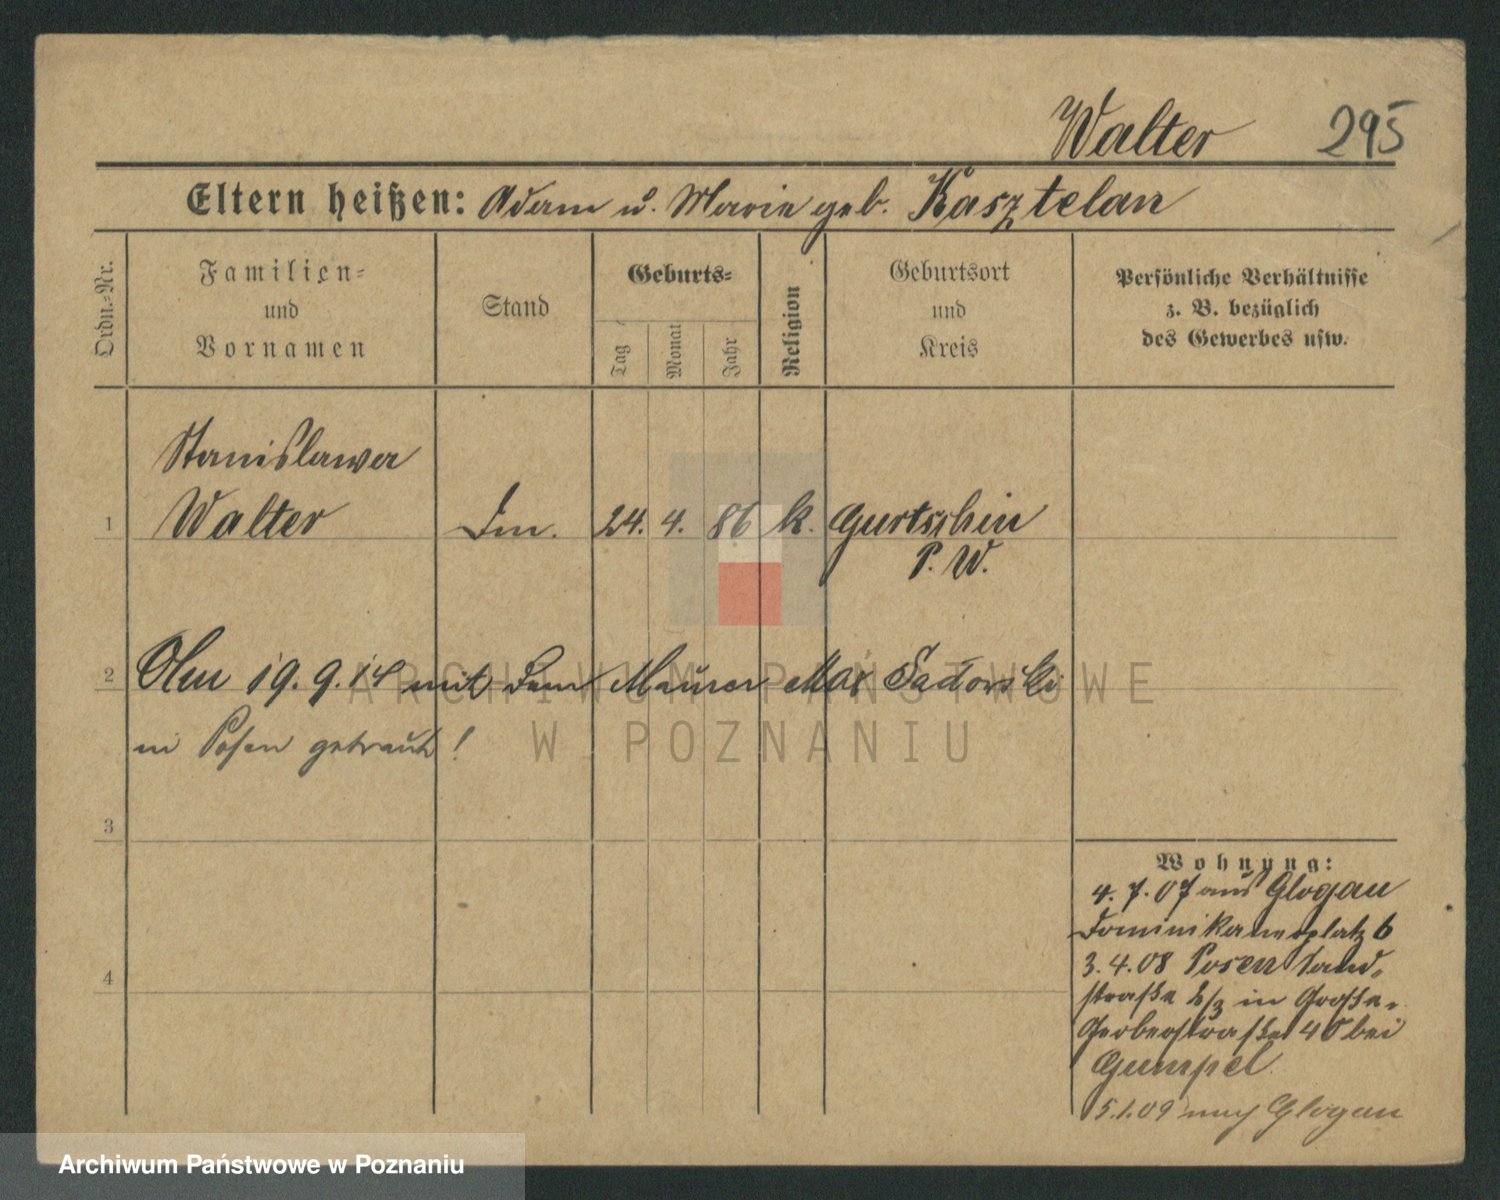 Walter 295
Eltern heißen: Adam u. Marie geb. Kasztelan
Ordn.-Nr.
Familien-
und
Vornamen
Stand
Geburts-
Tag
Monat
Jahr
Religion
Geburtsort
und
Kreis
Persönliche Verhältnisse
z. B. bezüglich
des Gewerbes usw.
Stanislawa
1 Walter 24. 4. 86 k. Gurtschin
P. W.
2 Am 19.9.14 mit dem Maurer Max Sadowski
in Posen getraut!
3
4
Wohnung:
4. 7. 07 aus Glogau
Dominikanerplatz 6
3. 4. 08 Posen Sand-
straße in Große-
Gerberstraße 40 bei
Gumpel
5.1.09 nach Glogau
ARCHIWUM PAŃSTWOWE
W POZNANIU
Archiwum Państwowe w Poznaniu